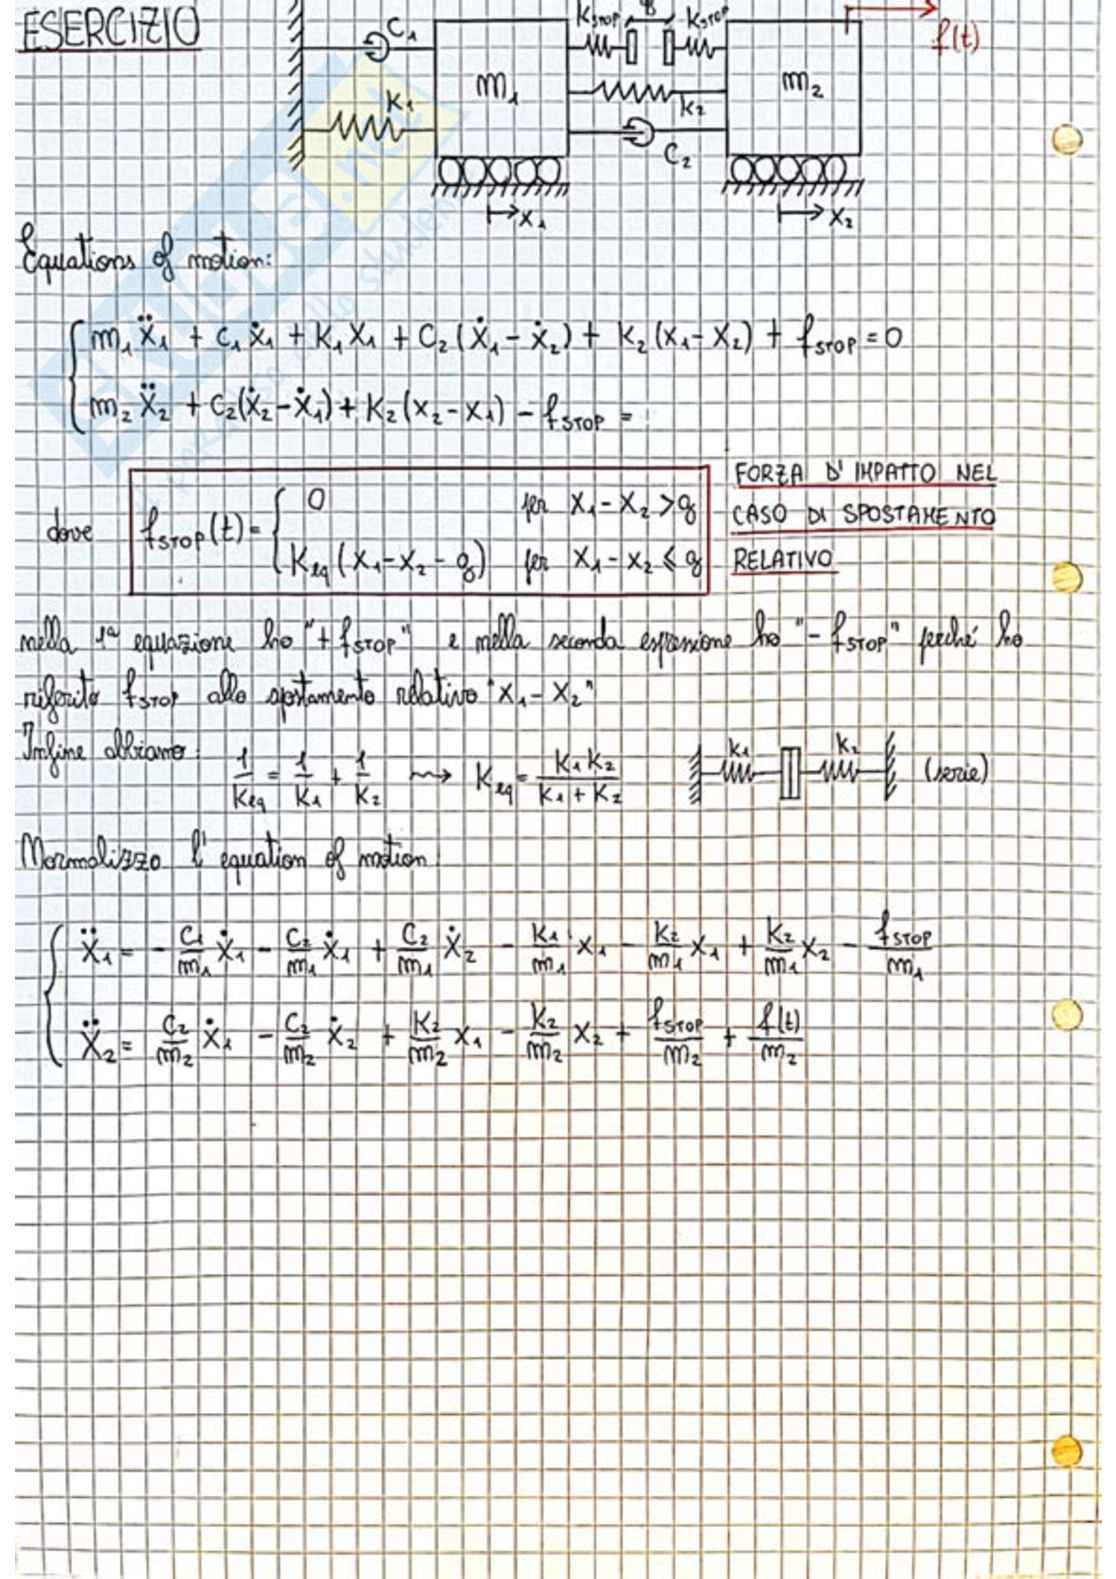 ESERCIZIO
C₁ K₁ m₁ KSTOP g KSTOP K₂ C₂ m₂ f(t)
x₁ x₂
Equations of motion:
m₁ẍ₁ + C₁ẋ₁ + K₁x₁ + C₂(ẋ₁-ẋ₂) + K₂(x₁-x₂) + fSTOP = 0
m₂ẍ₂ + C₂(ẋ₂-ẋ₁) + K₂(x₂-x₁) - fSTOP =
dove fSTOP(t) = { 0 per x₁-x₂ > g
Keq(x₁-x₂-g) per x₁-x₂ ⩽ g
FORZA D'IMPATTO NEL
CASO DI SPOSTAMENTO
RELATIVO
nella 1ª equazione ho "+fSTOP" e nella seconda espressione ho "-fSTOP" perché ho
riferito fSTOP allo spostamento relativo "x₁-x₂"
Infine abbiamo: 1/Keq = 1/K₁ + 1/K₂ ⇝ Keq = K₁K₂/(K₁+K₂) K₁ K₂ (serie)
Normalizzo l'equation of motion:
ẍ₁ = - C₁/m₁ ẋ₁ - C₂/m₁ ẋ₁ + C₂/m₁ ẋ₂ - K₁/m₁ x₁ - K₂/m₁ x₁ + K₂/m₁ x₂ - fSTOP/m₁
ẍ₂ = C₂/m₂ ẋ₁ - C₂/m₂ ẋ₂ + K₂/m₂ x₁ - K₂/m₂ x₂ + fSTOP/m₂ + f(t)/m₂